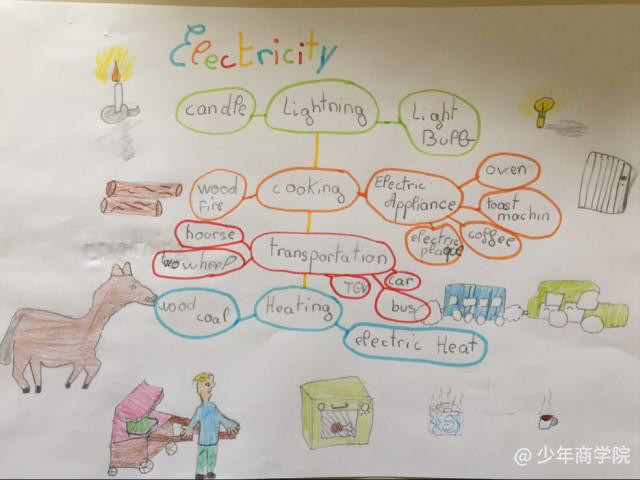 Electricity
candle
Lightning
Light
Bulb
wood
fire
cooking
Electric
Appliance
oven
toast
machin
electric
plaque
coffee
hourse
two wheel
transportation
TGV
car
bus
wood
coal
Heating
electric Heat
@少年商学院